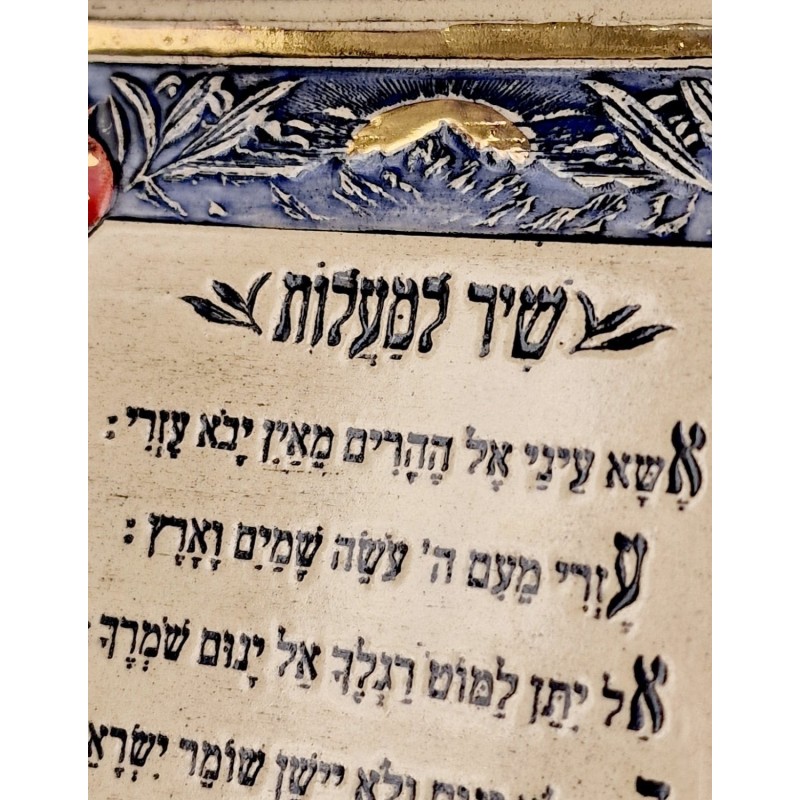 שִׁיר לַמַּעֲלוֹת
אֶשָּׂא עֵינַי אֶל הֶהָרִים מֵאַיִן יָבֹא עֶזְרִי :
עֶזְרִי מֵעִם ה' עֹשֵׂה שָׁמַיִם וָאָרֶץ :
אַל יִתֵּן לַמּוֹט רַגְלֶךָ אַל יָנוּם שֹׁמְרֶךָ
וְלֹא יִישַׁן שׁוֹמֵר